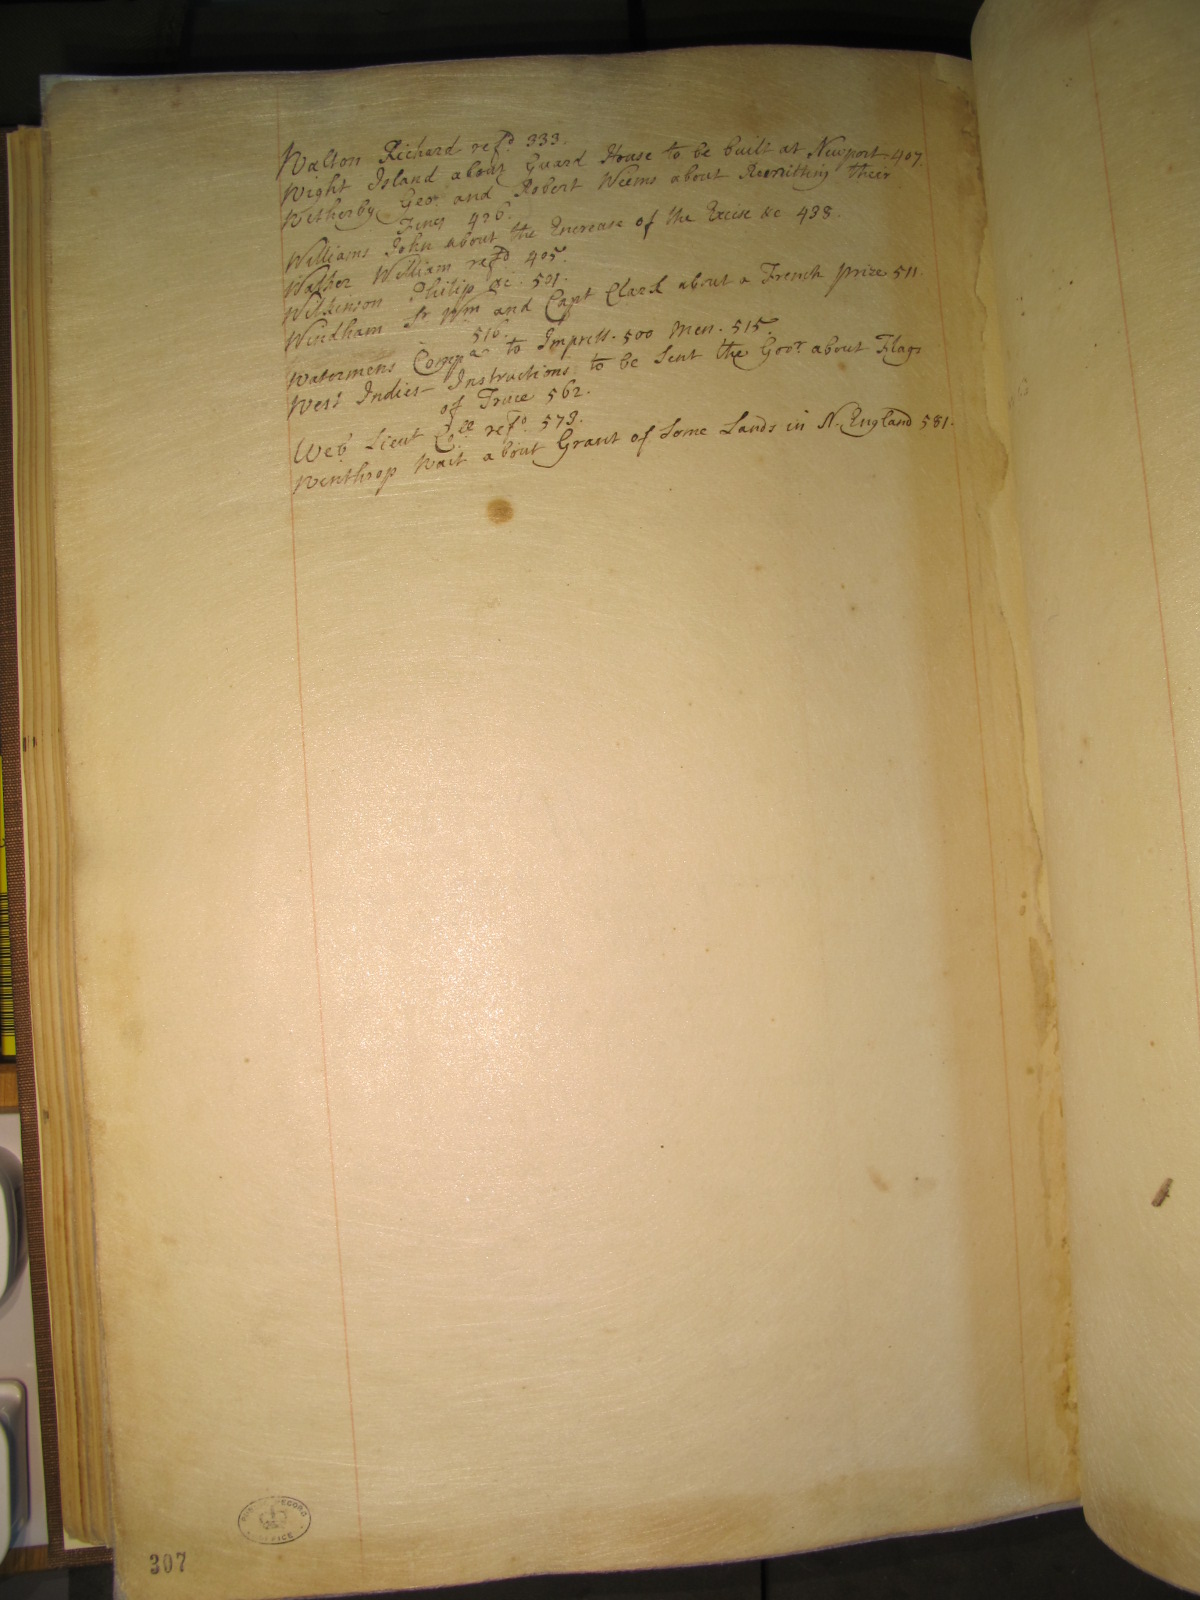 Walton Richard refd. 333.
Wight Island about Guard House to be built at Newport. 407.
Wetherby Geo: and Robert Weems about Recruitting their
426.
Williams John about the Increase of the Excise &c 438.
Walker William refd 405.
Wilkinson Philip &c. 501.
Windham Sr Wm and Capt Clark about a French prize 511.
516.
Watermens Compa. to Impress. 500 Men. 515.
West Indies Instructions to be sent the Govr. about Flags
of Truce 562.
Web Lieut Coll. refd. 573.
Winthrop Wait about Grant of some Lands in N. England 581.
PUBLIC RECORD OFFICE
307